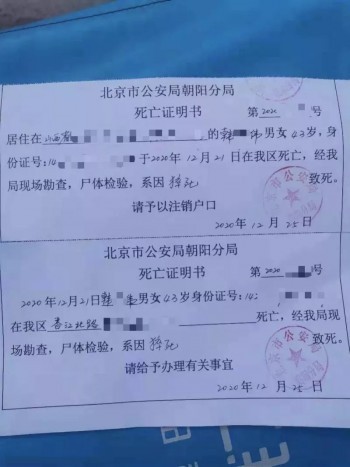 北京市公安局朝阳分局
死亡证明书 第2020 号
居住在山西省 的韩 伟男女43岁,身
份证号:14 于2020年12月21日在我区死亡,经我
局现场勘查,尸体检验,系因猝死 致死。
请予以注销户口
2020年12月25日
北京市公安局朝阳分局
死亡证明书 第2020 号
2020年12月21日韩 男女43岁身份证号:142
在我区香江北路 死亡,经我局现
场勘查,尸体检验,系因猝死 致死。
请给予办理有关事宜
2020年12月25日